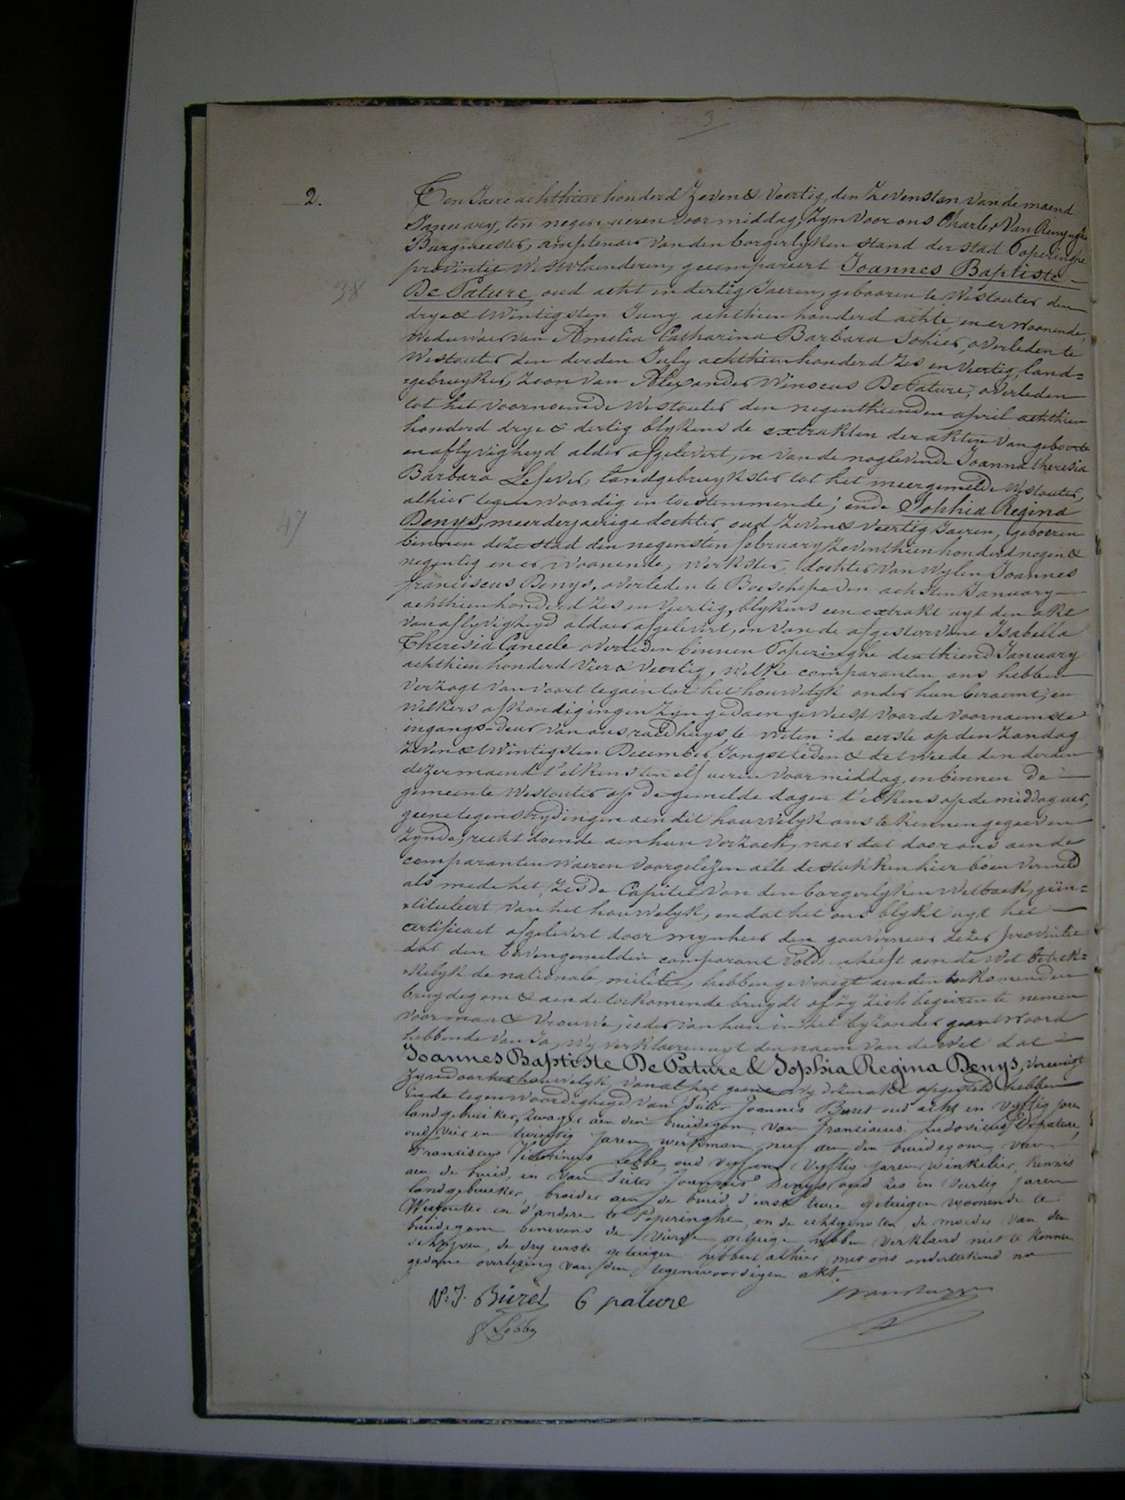 3
2.
Ten Jaere achthien honderd Zeven & Veertig, den Zevensten van de maend
January, ten negen ueren voor middag, Zyn voor ons Charles Van Renynghe
Burgmeester, amptenaer van den borgerlyken stand der stad Poperinghe
provintie Westvlaenderen, gecompareert Joannes Baptiste
38
De Pature, oud acht en dertig Jaeren, gebooren te Westouter den
drye & twintigsten Juny achthien honderd achte en er Woonende,
Weduwaer van Amelia Catharina Barbara Sohier, overleden te
Westouter den derden July achthienhonderd Zes en Veertig, land=
=gebruyker, Zoon van Alexander Winocus De Pature, overleden
tot het voornoemde Westouter den negenthienden april achthien
honderd drye & dertig blykens de extrakten der akten van geboorte
en aflyvigheyd aldaer afgelevert, en van de noglevende Joanna theresia
Barbara Lefever, Landgebruykster tot het meergemelde Westouter,
alhier tegenwoordig en toestemmende; ende Sophia Regina
47
Denys, meerderjaerige dochter, oud Zeven & Veertig Jaeren, gebooren
binnen deze stad den negensten february Zeventhien honderd negen &
negentig en er woonende, werkster, dochter van Wylen Joannes
franciscus Denys, overleden te Boeschepe den achsten January
achthien honderd Zes en Veertig, blykens een extrakt uyt den akt
van aflyvigheyd aldaer afgelevert, en van de afgestorvene Isabella
Theresia Caneele overleden binnen Poperinghe den thiend January
achthien honderd Vier & Veertig, welke comparanten ons hebben
Verzogt van voort te gaen tot het houwelyk onder hun beraemt, en
welkers afkondigingen Zyn gedaen geweest voor de voornaemste
ingangsdeur van ons raedhuys te weten: de eerste op den Zondag
Zeven & twintigsten December Jongstleden & de tweede den derden
dezer maend t'elkens ten elf ueren voor middag, en binnen de
gemeente Westouter op de gemelde dagen t'elkens op de middag uer,
geene tegenstrydingen aen dit houwelyk ons te kennen gegeeven
Zynde, recht doende aen hun verzoek, naer dat door ons aen de
comparanten waeren voorgelezen alle de stukken hier boven vermeld
als mede het Zesde Capittel van den borgerlyken Wetboek, geïn=
=tituleert van het houwelyk, en dat het ons blykt uyt het
certificaet afgelevert door mynheer den gouverneur dezer provintie
dat den bovengemelden comparant vold. heeft aen de Wet betrek=
=kelyk de nationale militie, hebben gevraegt aen den toekomenden
bruydegom & aen de toekomende bruydt of Zy Zich begeiren te nemen
voor man & Vrouwe, ieder van hun in het byzonder geantwoord
hebbende van Ja, Wy verklaeren uyt den naem van de Wet dat
Joannes Baptiste De Pature & Sophia Regina Denys, Vereenigt
Zyn door het houwelyk, van al het geene wy dezen akt opgesteld hebben
in de tegenwoordigheyd van Pieter Joannes Buret oud acht en vyftig jaren
landgebruiker, zwager aen den bruidegom, van Franciscus Ludovicus Depature,
oud vier en twintig jaren, werkman, nef aen den bruidegom, van
Franciscus Victorinus Lebbe, oud vyf en vyftig jaren, winkelier, kennis
aen de bruid, en van Pieter Joannes Denys oud zes en veertig jaren
landgebruiker, broeder aen de bruid d'eerste twee getuigen woonende te
Westouter en d'andere te Poperinghe, en de echtgenoten, de moeder van den
bruidegom benevens de vierde getuige hebben verklaerd niet te konnen
schryven, de dry eerste getuigen hebben alhier met ons onderteekend na
gedane voorlezing van den tegenwoordigen akt.
P. J. Büret 6 pature
f Lebbe